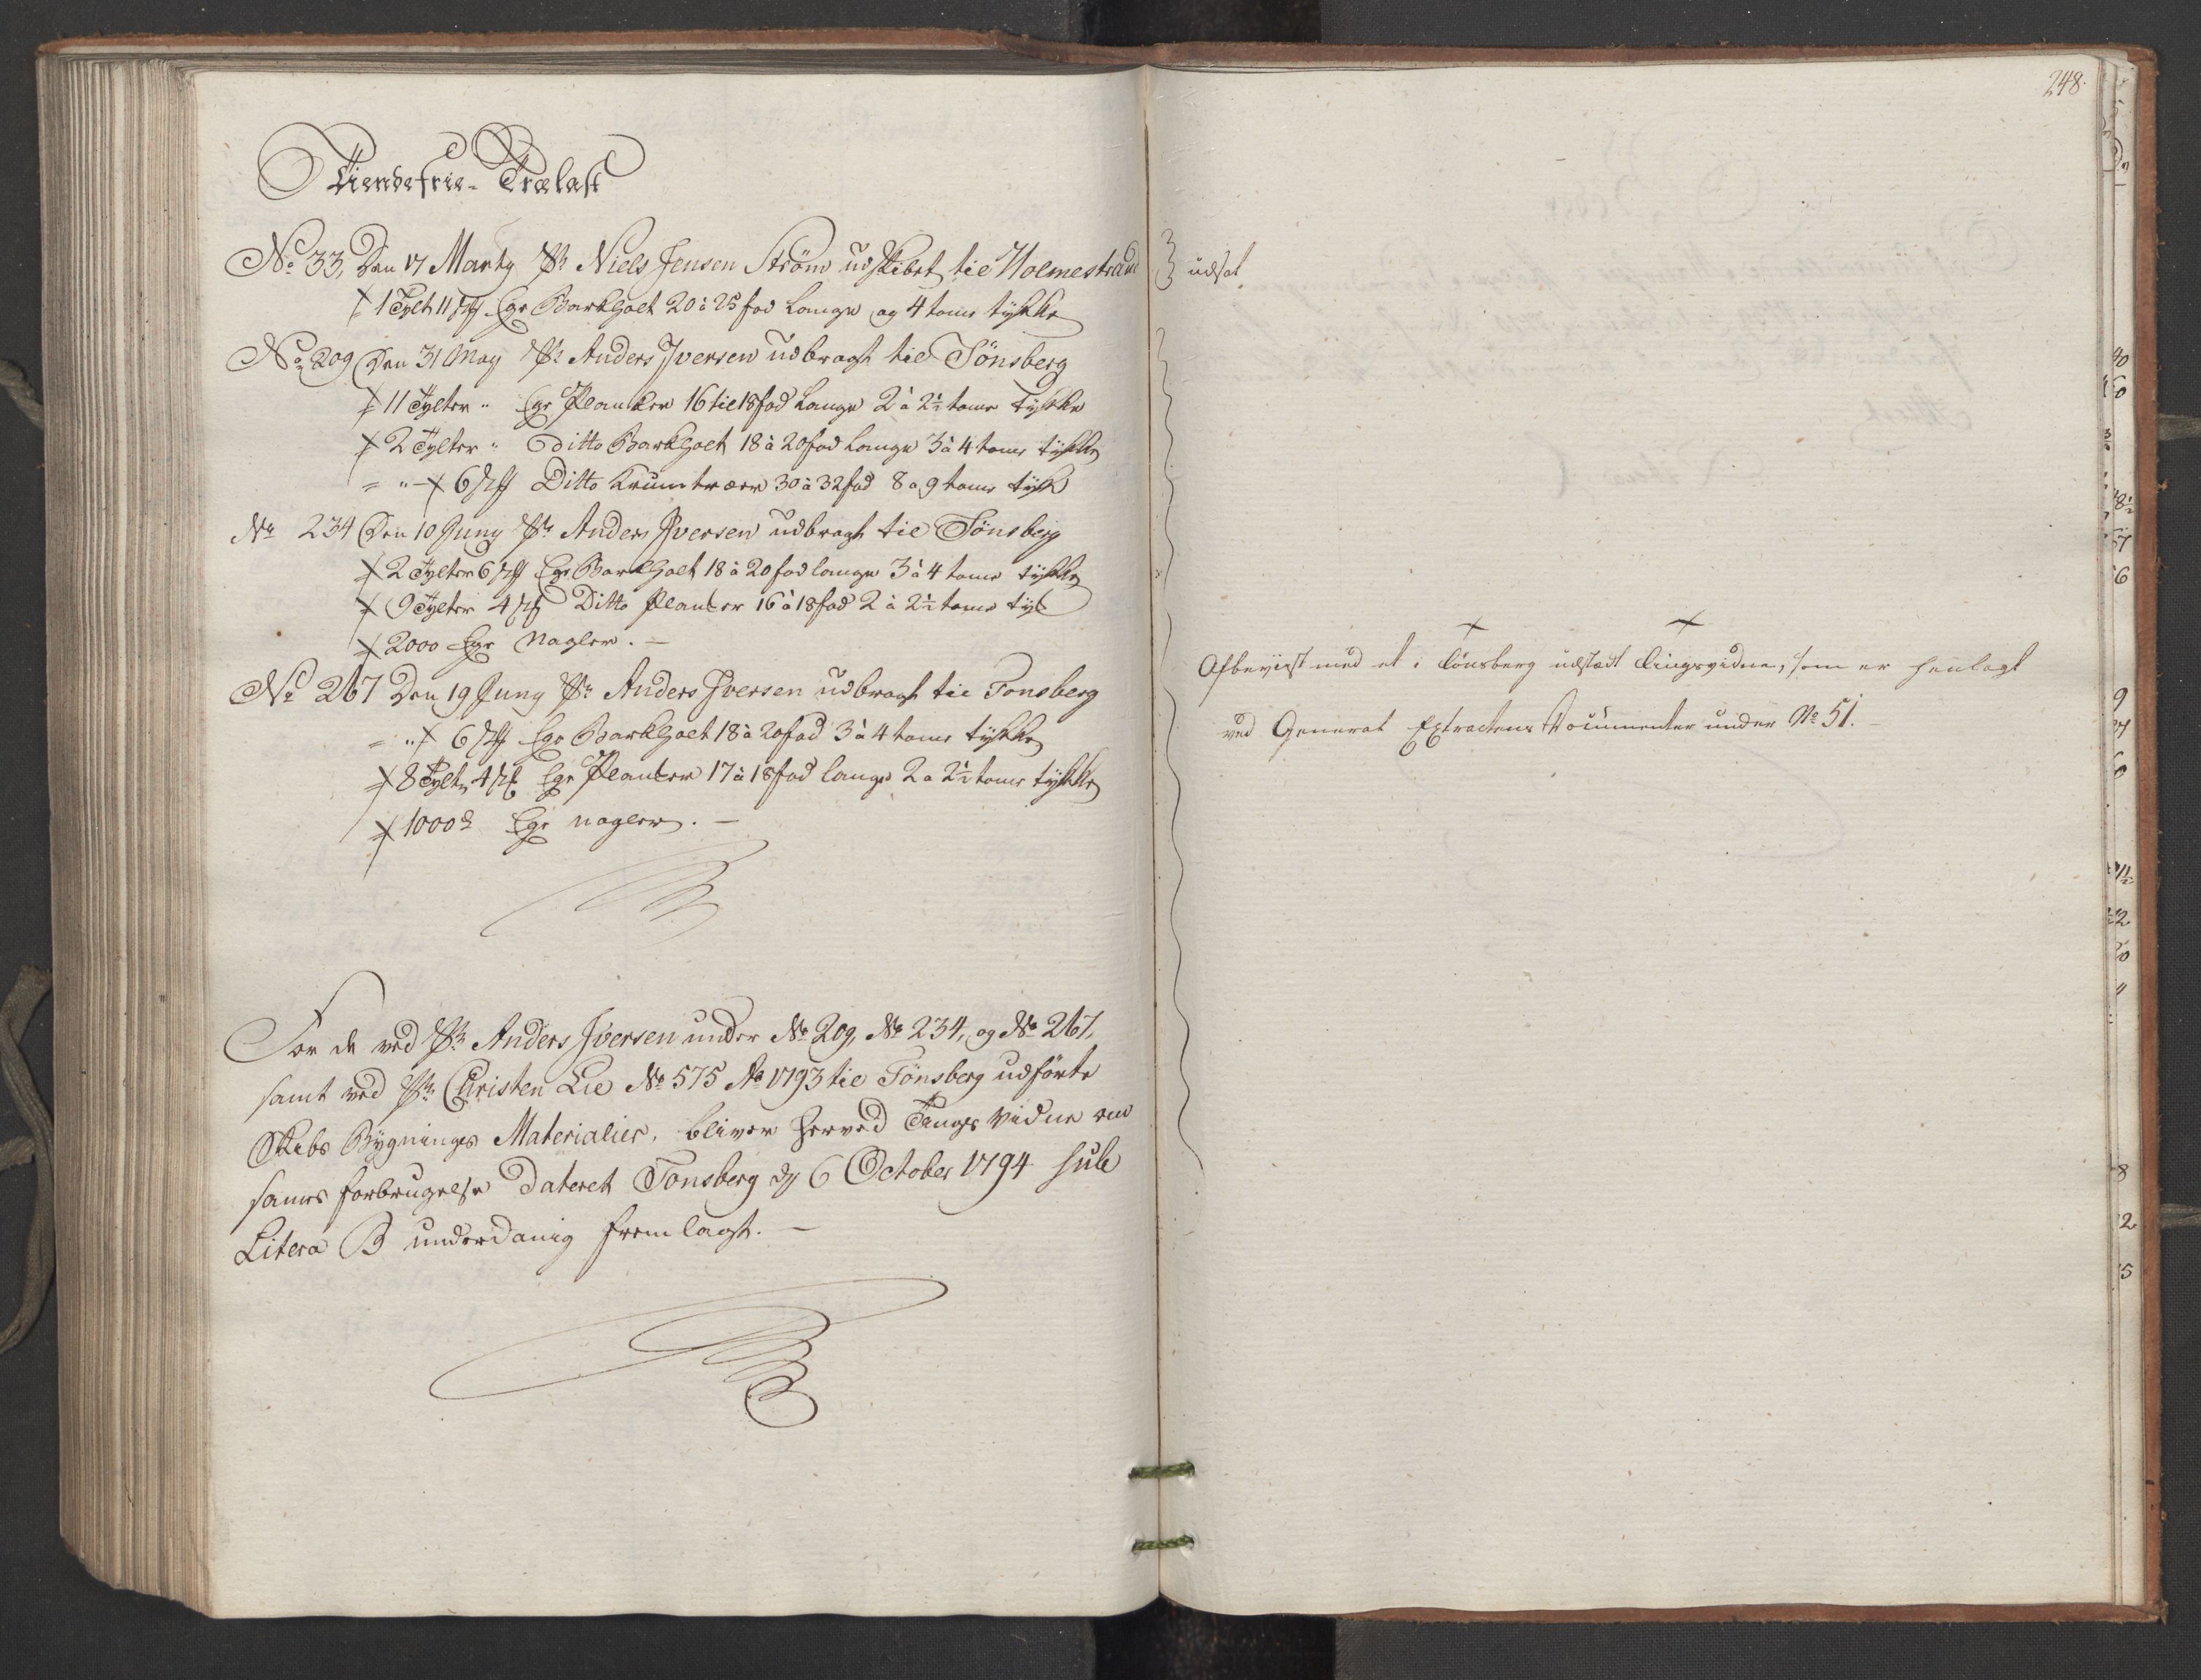 Tiendefrie Trælast
No 33, Den 17 Marty Pr Niels Jensen Ström udskibet til Holmestrand
1 Tylt 11 Ege Barkholt 20 à 25 fod Lange og 4 toms tykke
No 209 Den 31 May Pr Anders Iversen udbragt til Tönsberg
11 Tylter " Ege Planker 16 til 18 fod Lange 2 à 2½ toms Tykke
2 Tylter " Ditto Barkholt 18 à 20 fod Lange 3 à 4 toms tykke
= " 6 Ditto Krumtræer 30 à 32 fod 8 a 9 toms tyk
No 234 Den 10 Juny Pr Anders Iversen udbragt til Tönsberg
2 Tylter 6 Ege Barkholt 18 à 20 fod lange 3 à 4 toms tykke
9 Tylter 4 Ditto Planker 16 à 18 fod 2 à 2½ toms tyk
2000 Ege Nagler. —
No 267 Den 19 Juny Pr Anders Iversen udbragt til Tonsberg
= " 6 Ege Barkholt 18 à 20 fod 3 à 4 toms tykke
8 Tylt 4 Ege Planker 17 à 18 fod lange 2 a 2½ toms tykke
1000 Ege nagler. —
For de ved Pr Anders Iversen under No 209, No 234, og No 267,
samt ved Pr Christen Lie No 575 Ao 1793 til Tönsberg udförte
Skibs Bygnings Materialier, bliver herved Tings Vidne om
sames forbrugelse Dateret Tonsberg d 6 October 1794 sub
Litera B underdanig fremlagt. —
248.
udsat
Afbeviist med et i Tönsberg udstædt Tingsvidne, som er henlagt
ved General Extractens Documenter under No 51. —